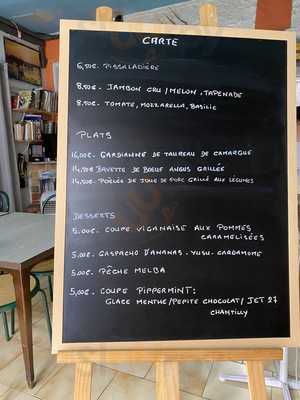 CARTE
6,50€. PISSALADIÈRE
8,50€. JAMBON CRU / MELON. TAPENADE
8,50€. TOMATE, MOZZARELLA, BASILIC
PLATS
16,00€. GARDIANNE DE TAUREAU DE CAMARGUE
14,50€ BAVETTE DE BOEUF ANGUS GRILLÉE
14,50€. POÊLÉE DE JOUE DE PORC GRILLÉ AUX LÉGUMES
DESSERTS
5,00€. COUPE VIGANAISE AUX POMMES
CARAMELISÉES
5,00€. GASPACHO D'ANANAS. YUSU. CARDAMOME
5,00€. PÊCHE MELBA
5,00€. COUPE PIPPERMINT:
GLACE MENTHE/PEPITE CHOCOLAT/ JET 27
CHANTILLY